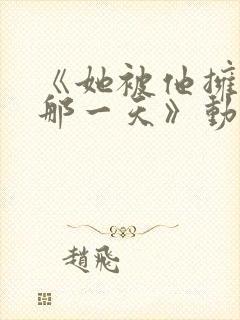 《她被他擁
那一天》動
趙飛